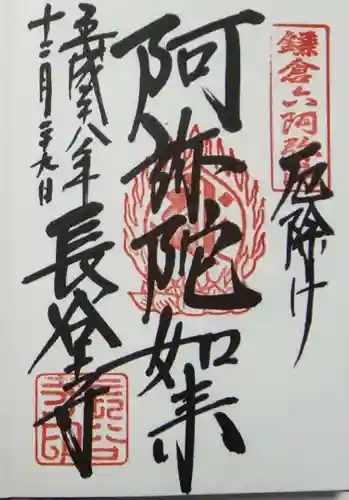 鎌倉六阿弥
厄除け
阿弥陀如来
平成二十八年
十二月二十九日
長谷寺